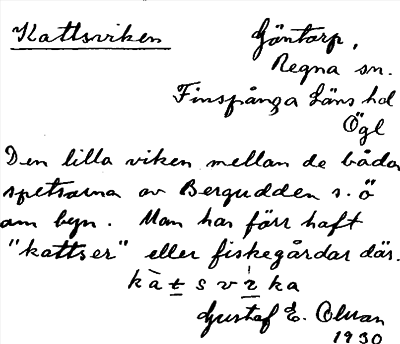 Kattsviken
Göntorp,
Regna sn.
Finspånga Läns hd
Ögl
Den lilla viken mellan de båda
spetsarna av Bergudden s. ö
om byn. Man har förr haft
"kattser" eller fiskegårdar där.
Gustaf E.
1930